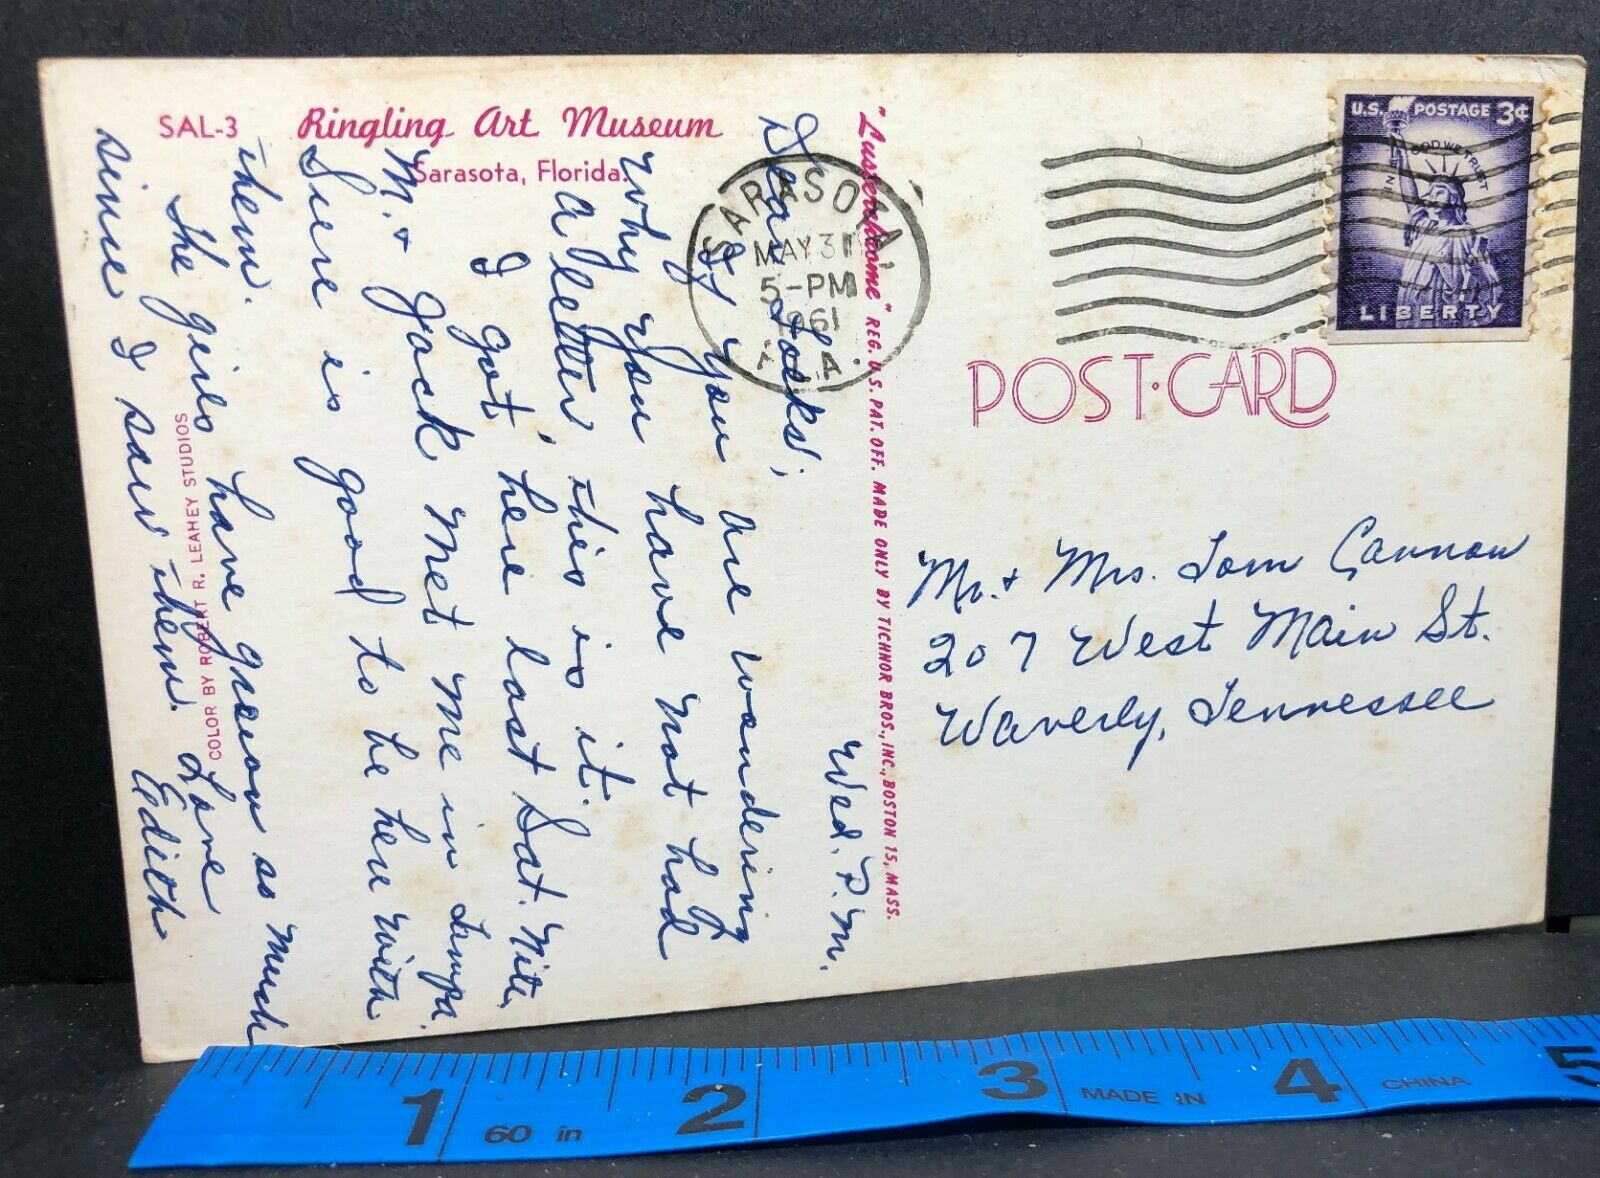 SAL-3
Ringling Art Museum
Sarasota, Florida.
Wed. P.M.
Dear Folks;
If you are wondering
why you have not had
a letter, this is it.
I got here last Sat. Nite,
M. + Jack met me in Tampa.
Sure is good to be here with
them.
The girls have grown so much
since I saw them. Love
Edith
COLOR BY ROBERT R. LEAHEY STUDIOS
"Lusterchrome" REG. U.S. PAT. OFF. MADE ONLY BY TICHNOR BROS., INC., BOSTON 15, MASS.
SARASOTA,
MAY 31
5-PM
1961
FLA.
U.S. POSTAGE 3¢
IN GOD WE TRUST
LIBERTY
POST·CARD
Mr. + Mrs. Tom Cannon
207 West Main St.
Waverly, Tennessee
1 60 in 2 3 MADE IN 4 CHINA 5